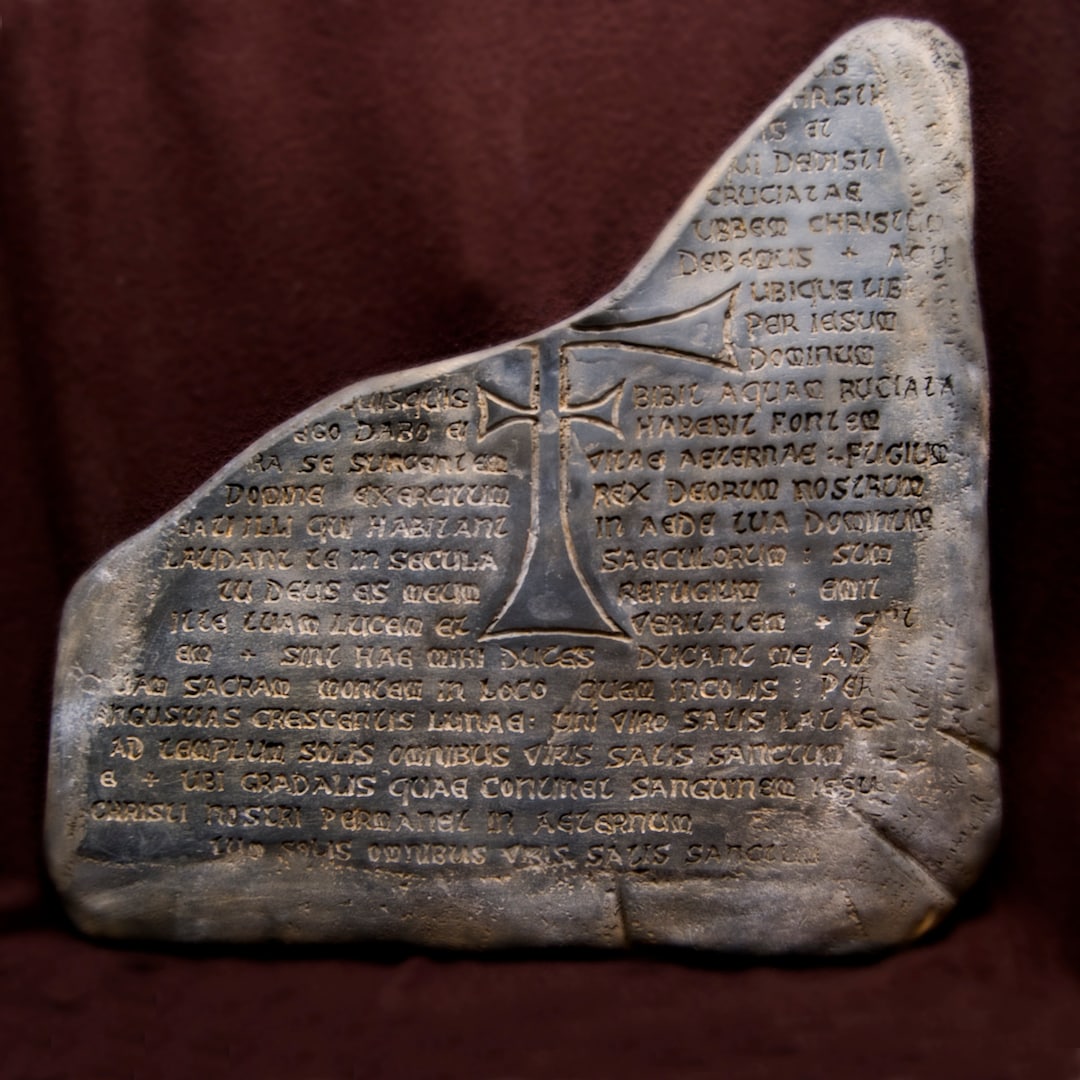 IS ET
QUI DEDISTI
CRUCIATAE
URBEM CHRISTO
DEBEMUS + AC
UBIQUE LIB
PER IESUM
DOMINUM
QUISQUIS BIBIT AQUAM
EGO DABO EI HABEBIT FONTEM
RA SE SURGENTEM VITAE AETERNAE : FUGIUM
DOMINE EXERCITUUM REX DEORUM NOSTRUM
EATI ILLI QUI HABITANT IN AEDE TUA DOMINUM
LAUDANT TE IN SECULA SAECULORUM : SUM
TU DEUS ES MEUM REFUGIUM : EMIT
ILLE TUAM LUCEM ET VERITATEM +
EM + SINT HAE MIHI DUCES DUCANT ME AD
UAM SACRAM MONTEM IN LOCO QUEM INCOLIS : PER
ANGUSTIAS CRESCENTIS LUNAE : UNI VIRO SATIS LATAS
AD TEMPLUM SOLIS OMNIBUS VIRIS SATIS SANCTUM
E + UBI GRADALIS QUAE CONTINET SANGUINEM IESU
CHRISTI NOSTRI PERMANET IN AETERNUM
SOLIS OMNIBUS VIRIS SATIS SANCTUM